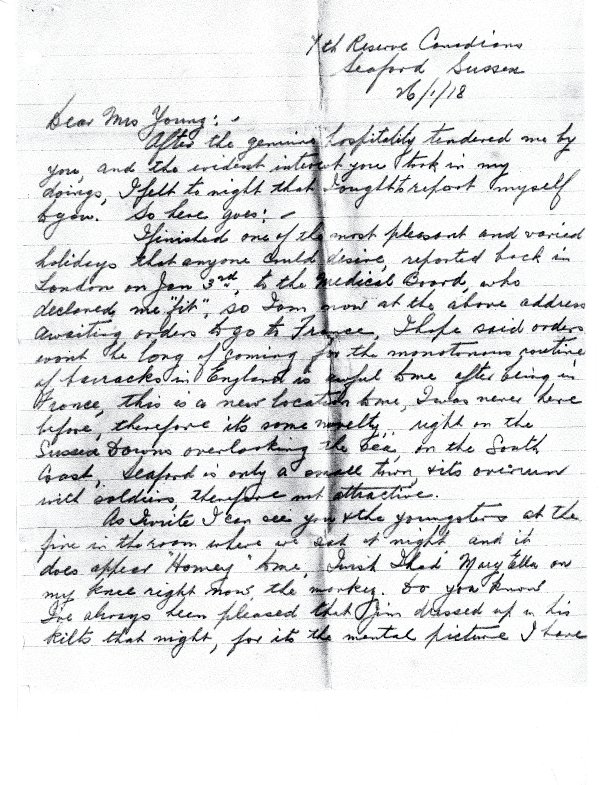 7th Reserve Canadians
Seaford Sussex
26/1/18
Dear Mrs Young: -
After the genuine hospitality tendered me by
you, and the evident interest you took in my
doings, I felt to night that I ought to report myself
to you. So here goes: -
I finished one of the most pleasant and varied
holidays that anyone could desire, reported back in
London on Jan 3rd, to the Medical Board, who
declared me "fit", so I am now at the above address
awaiting orders to go to France, I hope said orders
wont be long of coming for the monotonous routine
of barracks in England is awful to me after being in
France, this is a new location to me, I was never here
before, therefore its some novelty, right on the
Sussex Downs overlooking the Sea, on the South
Coast, Seaford is only a small town, & its overrun
with soldiers, therefore not attractive.
As I write I can see you & the youngsters at the
fire in the room where we sat at night and it
does appear "Homey" to me, I wish I had Mary Ella on
my knee right now, the monkey. Do you know
I've always been pleased that Jim dressed up in his
kilts that night, for its the mental picture I have